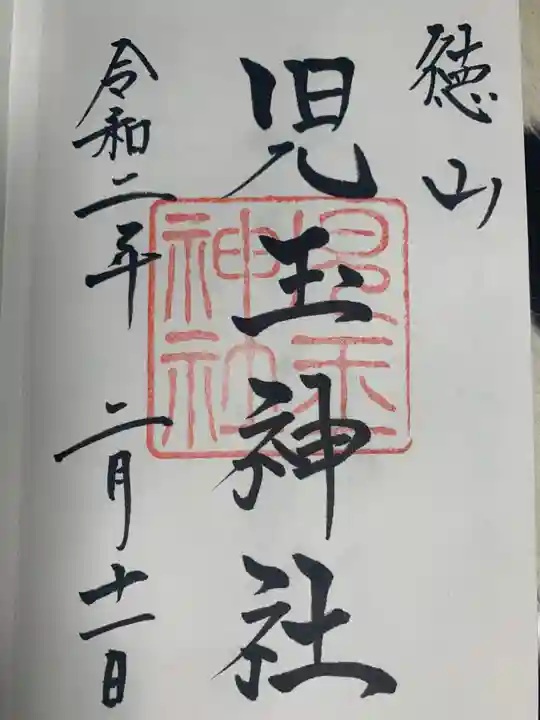 徳山
児玉神社
令和二年 二月十一日
児玉
神社